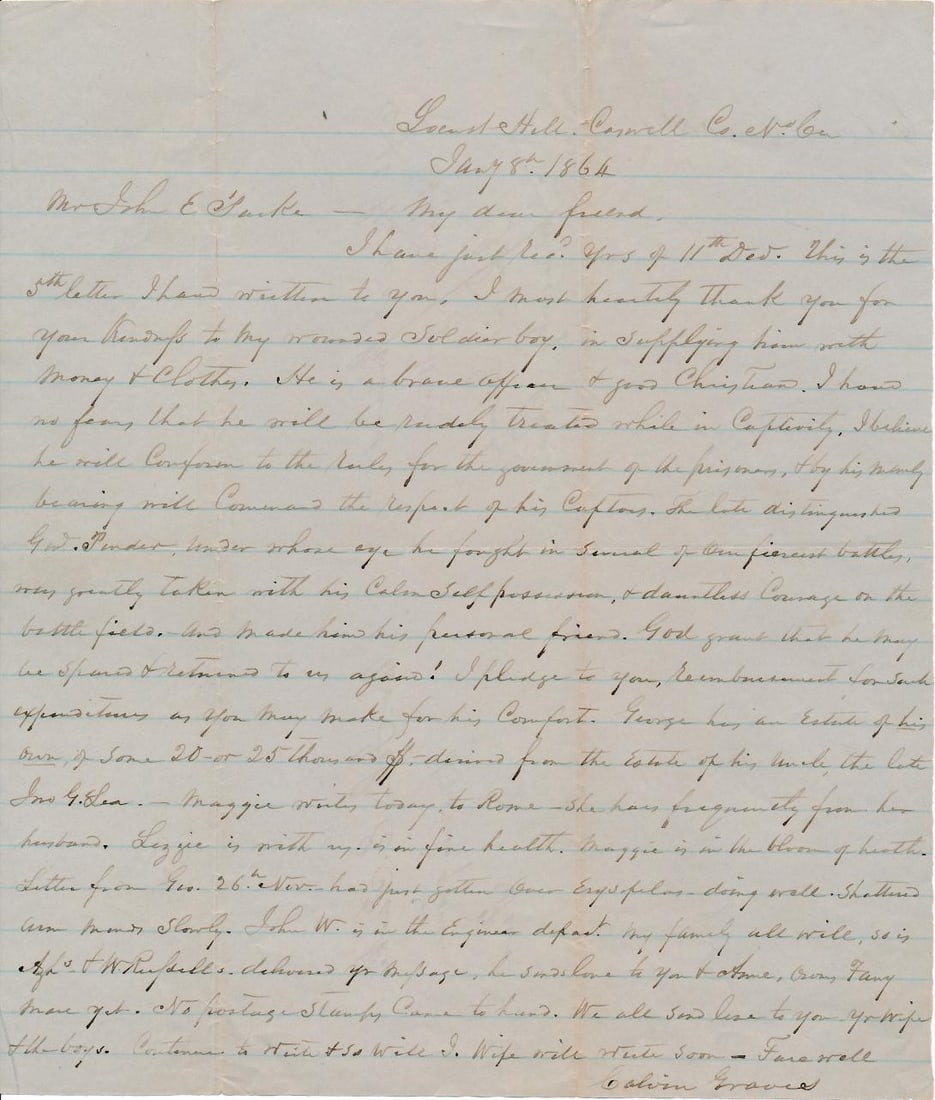 Locust Hill. Caswell Co. No Ca
Jany 8th 1864
Mr John E — My dear friend.
I have just Recd Yrs of 11th Decr. This is the
5th letter I have written to you. I most heartily thank you for
your kindness to my wounded Soldier boy, in supplying him with
Money & Clothes. He is a brave officer & good Christian. I have
no fears that he will be rudely treated while in Captivity. I believe
he will Conform to the rules for the government of the prisoners, & by his manly
bearing will Command the respect of his Captors. The late distinguished
Genl. Pender, under whose eye he fought in several of our fiercest battles,
was greatly taken with his Calm Self possession, & dauntless Courage on the
battle field. - And made him his personal friend. God grant that he may
be spared & returned to us again! I pledge to you, reembursement for such
expenditures as you may make for his Comfort. George has an Estate of his
own, of some 20 - or 25 thousand $, - derived from the Estate of his Uncle, the late
Jno G. Lea. — Maggie writes today, to Rome - She hears frequently from her
husband. Lizzie is with us. is in fine health. Maggie is in the bloom of health.
Letter from Geo. 26th Nov. had just gotten over Erysipelas - doing well. Shattered
arm mends slowly. John W. is in the Engineer depart. My family all well, so is
Azhs & W Russells. delivered yr message, he sends love to you & Anne,
more yet. No postage Stamps Came to hand. We all send love to you Yr Wife
& the boys. Continue to write & so will I. Wife will write soon — Farewell
Calvin Graves